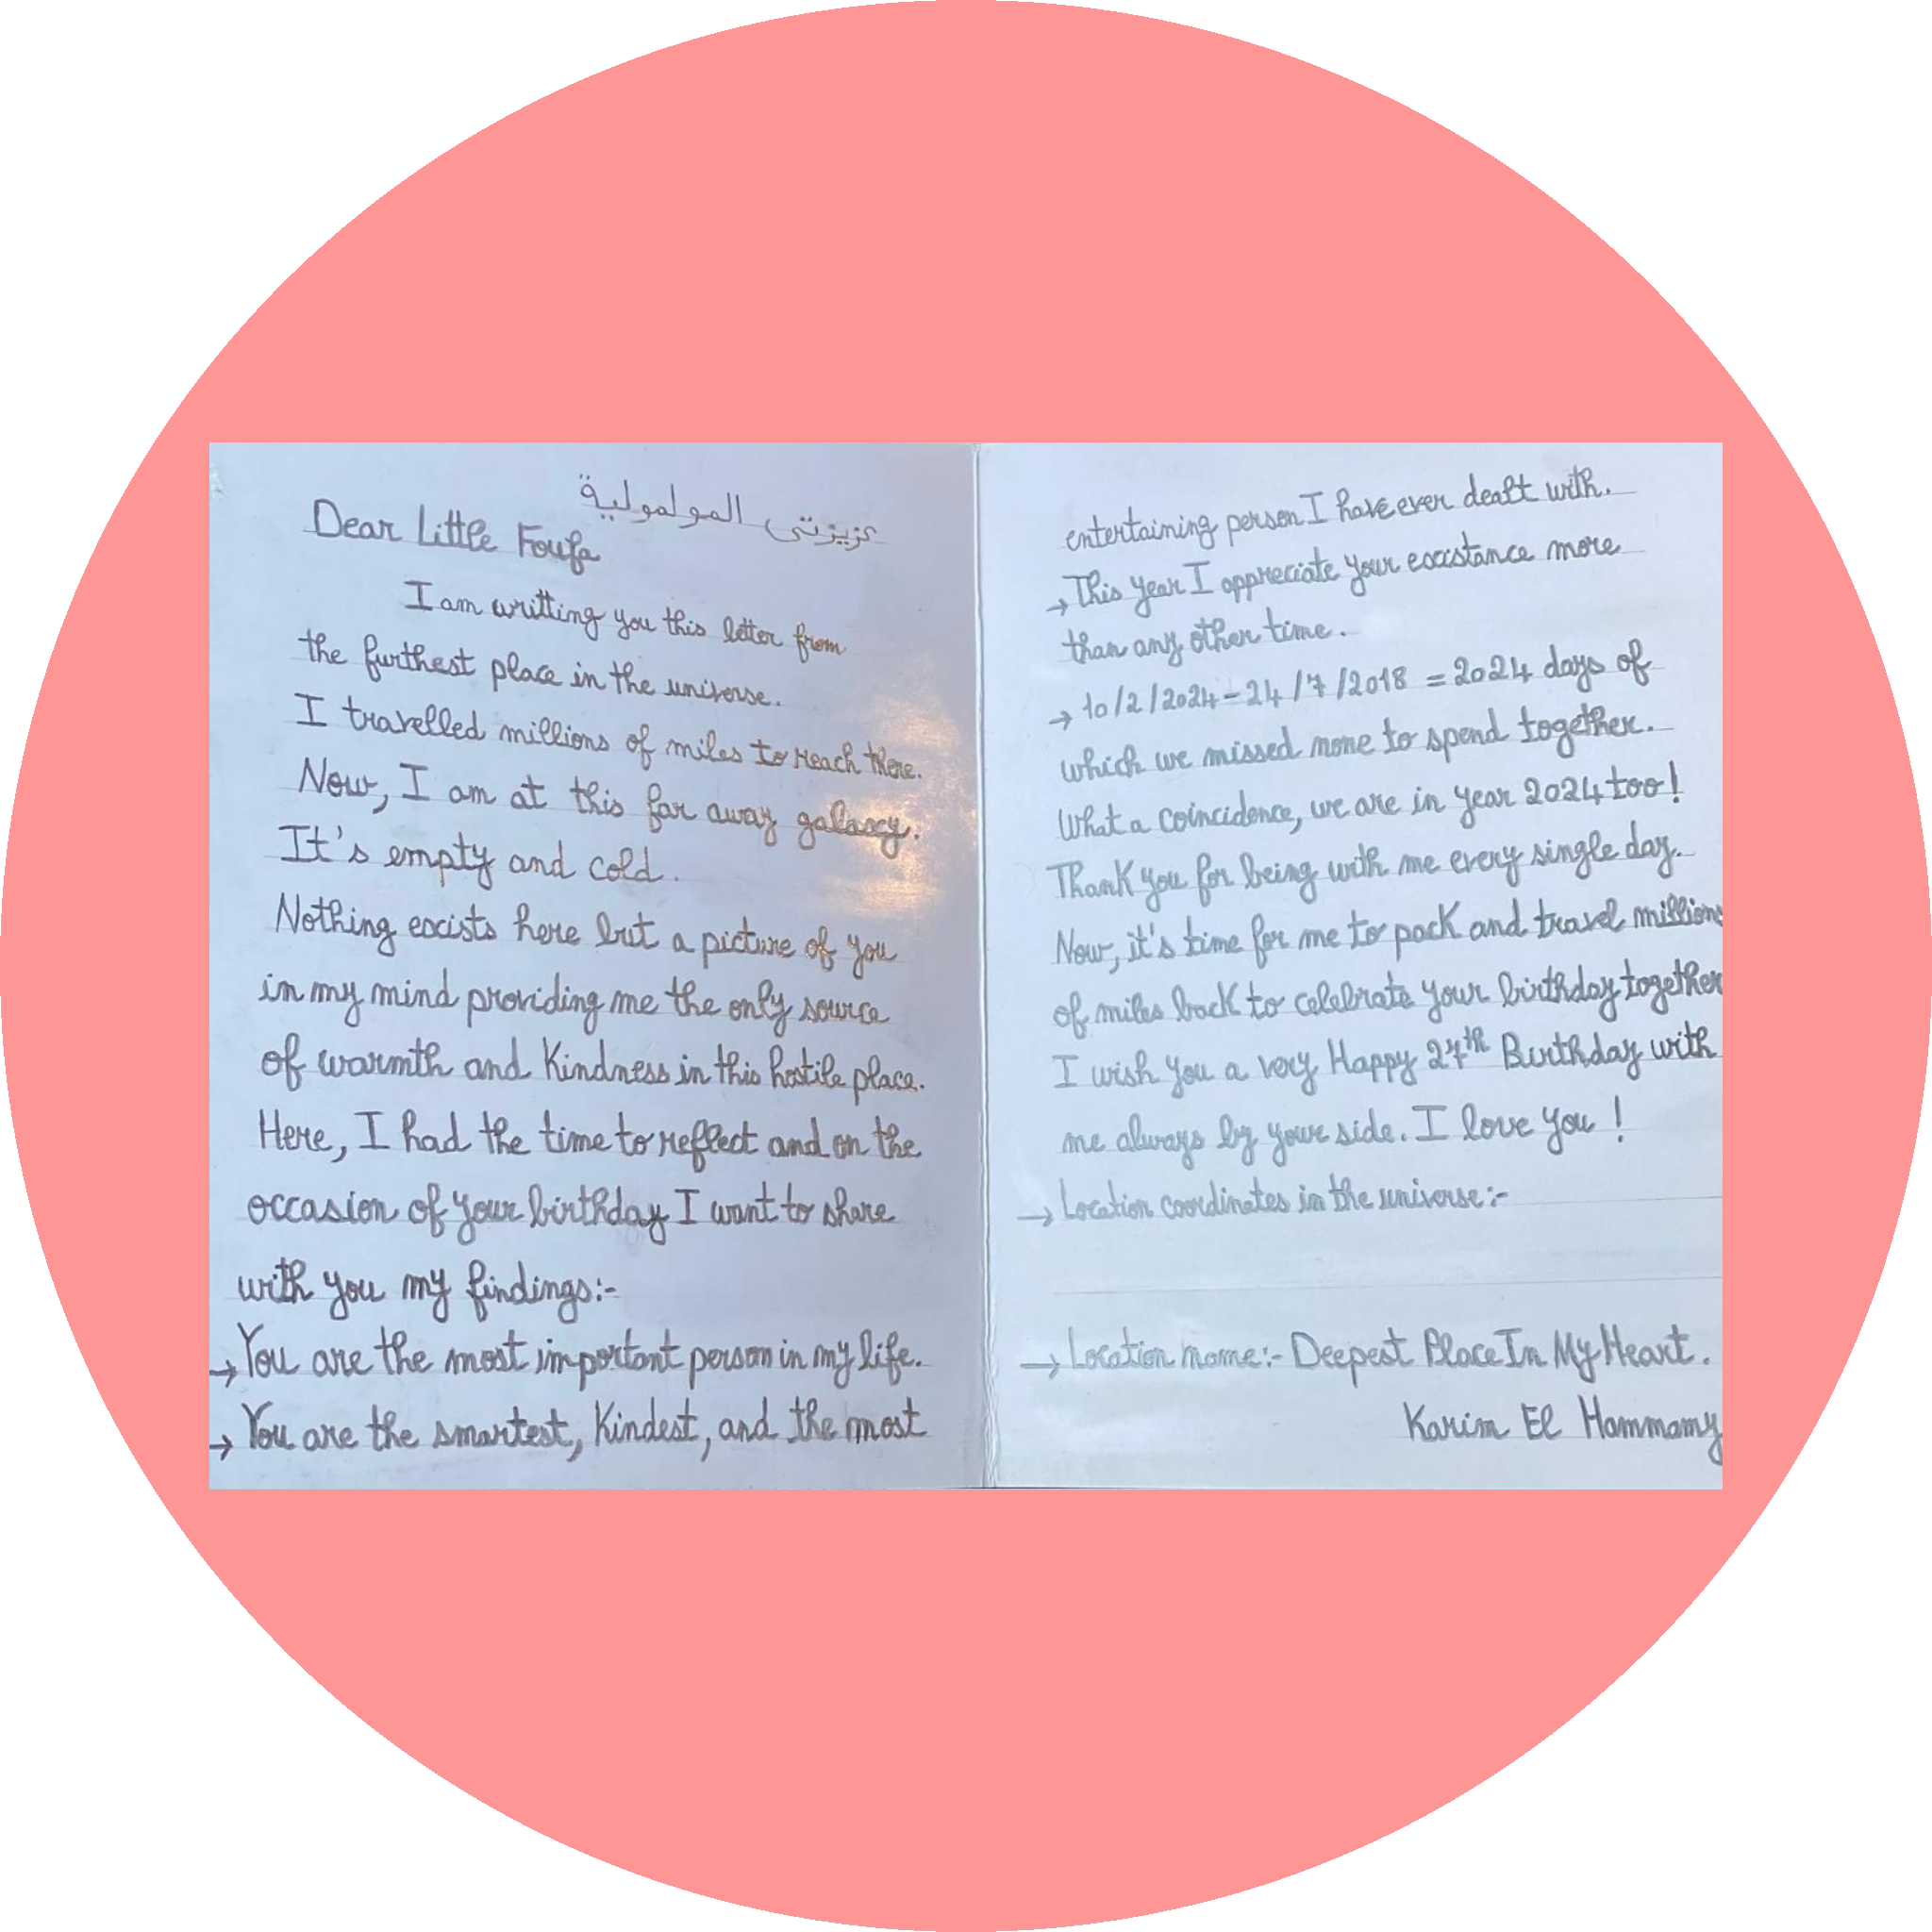 عزيزتى المولمولية
Dear Little Foufa
I am writting you this letter from
the furthest place in the universe.
I travelled millions of miles to reach there.
Now, I am at this far away galaxy.
It's empty and cold.
Nothing exists here but a picture of you
in my mind providing me the only source
of warmth and kindness in this hostile place.
Here, I had the time to reflect and on the
occasion of your birthday I want to share
with you my findings:-
→ You are the most important person in my life.
→ You are the smartest, kindest, and the most
entertaining person I have ever dealt with.
→ This year I appreciate your existance more
than any other time.
→ 10/2/2024 - 24/7/2018 = 2024 days of
which we missed none to spend together.
What a coincidence, we are in year 2024 too!
Thank you for being with me every single day.
Now, it's time for me to pack and travel millions
of miles back to celebrate your birthday together
I wish you a very Happy 27th Birthday with
me always by your side. I love you!
→ Location coordinates in the universe:-
→ Location name:- Deepest Place In My Heart.
Karim El Hammamy